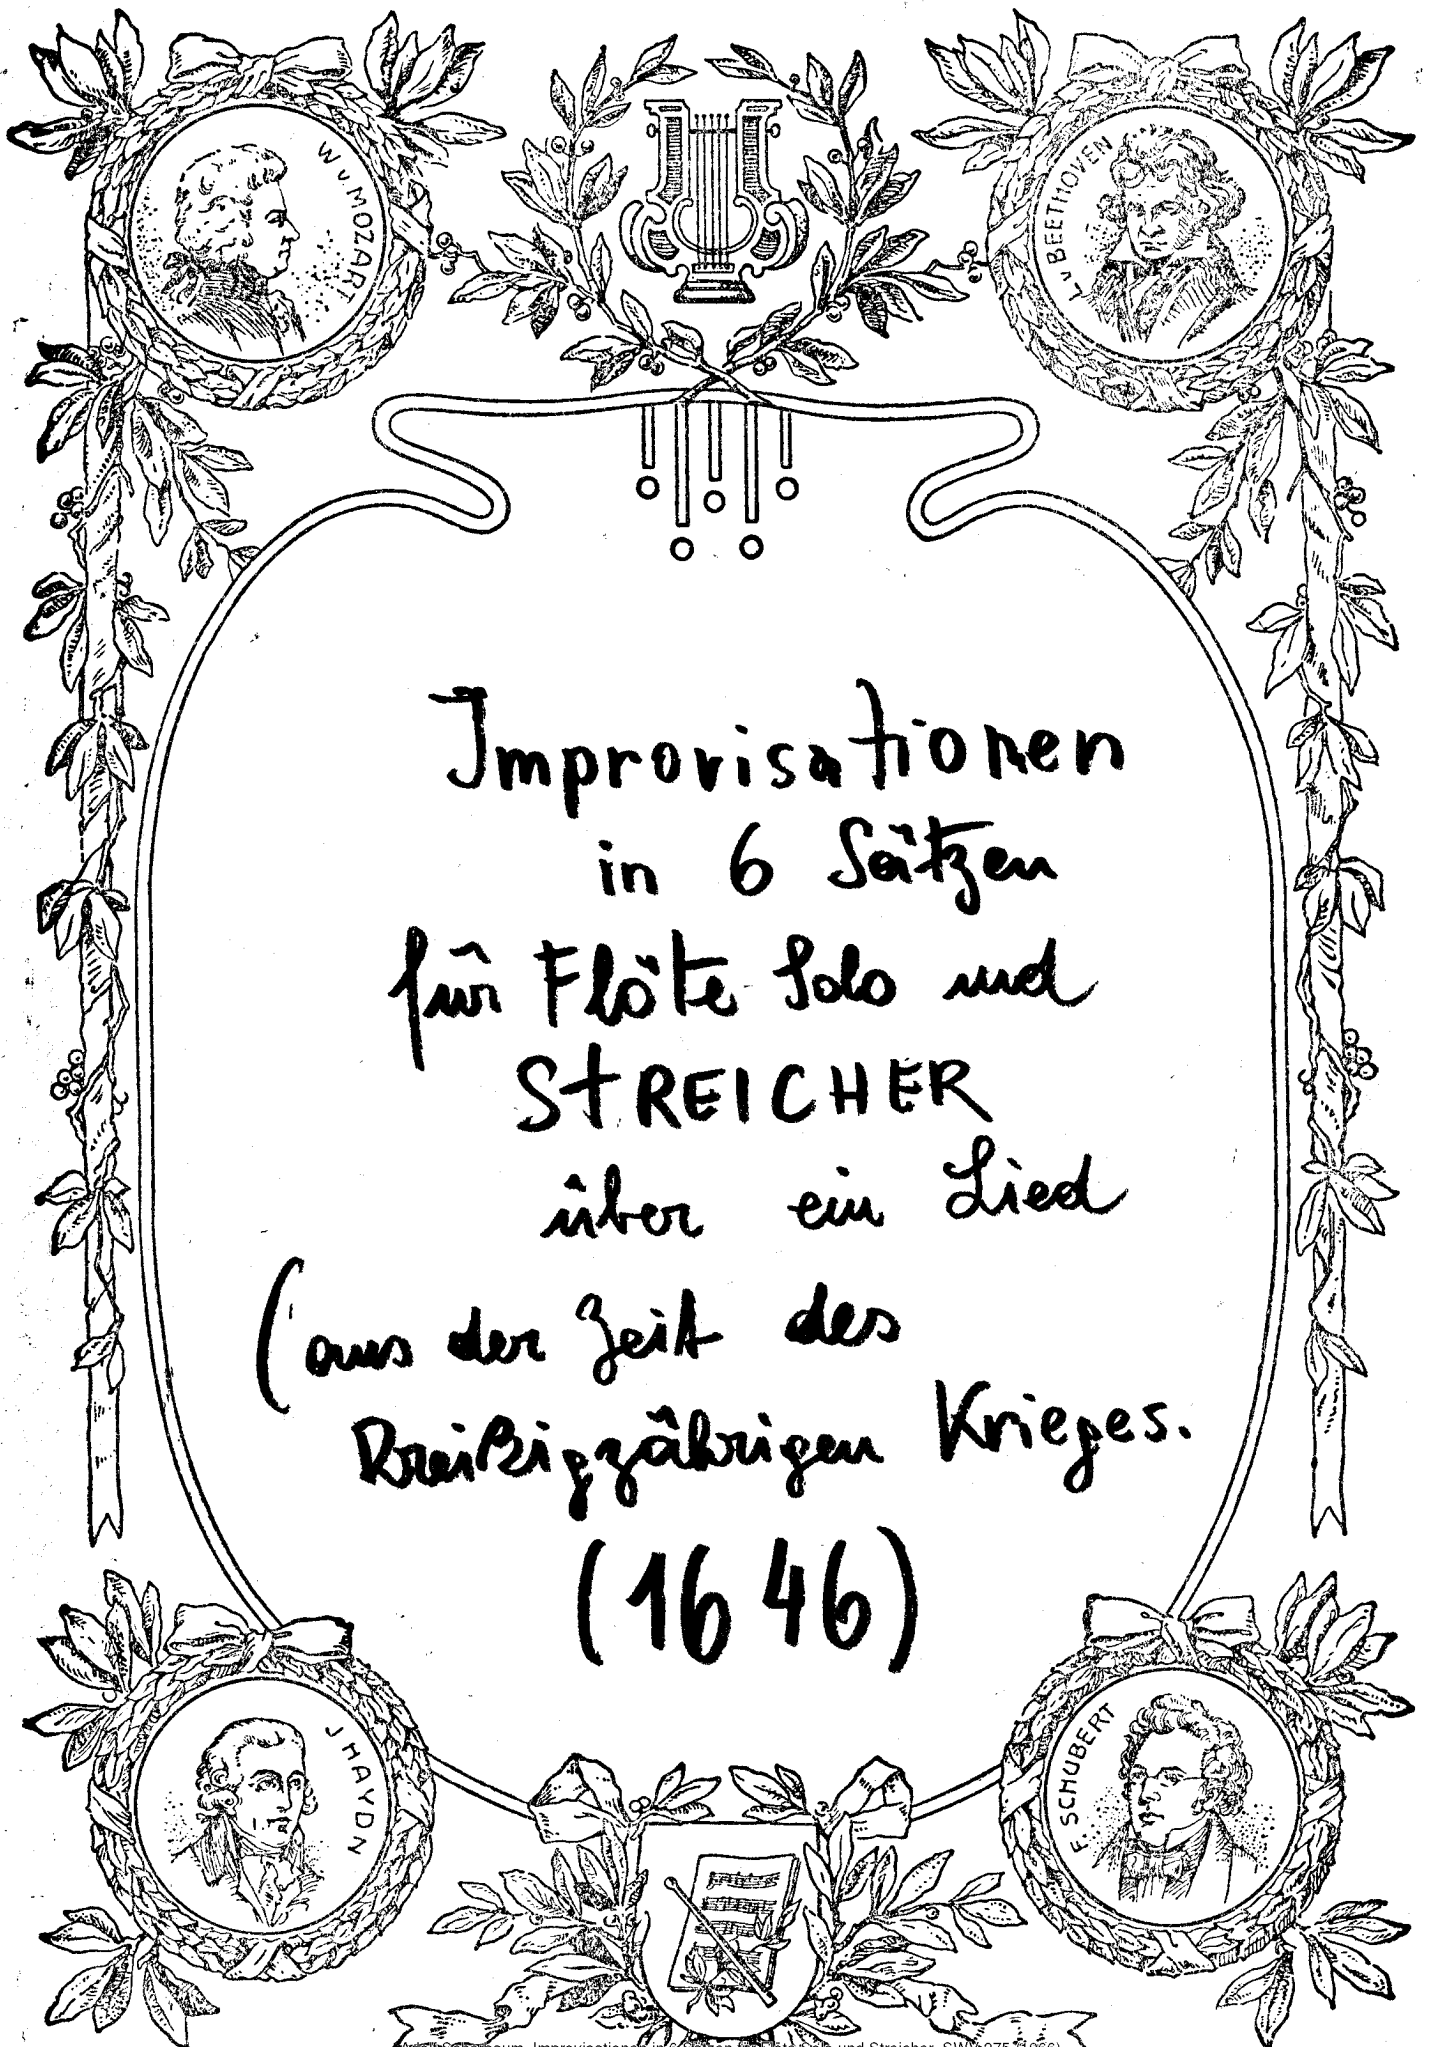 W v MOZART
L. v BEETHOVEN
Improvisationen
in 6 Sätzen
für Flöte Solo und
StREICHER
über ein Lied
(aus der Zeit des
Dreißigzährigen Krieges.
(1646)
J HAYDN
F. SCHUBERT
Improvisationen in 6 Sätzen für Flöte Solo und Streicher, SWV